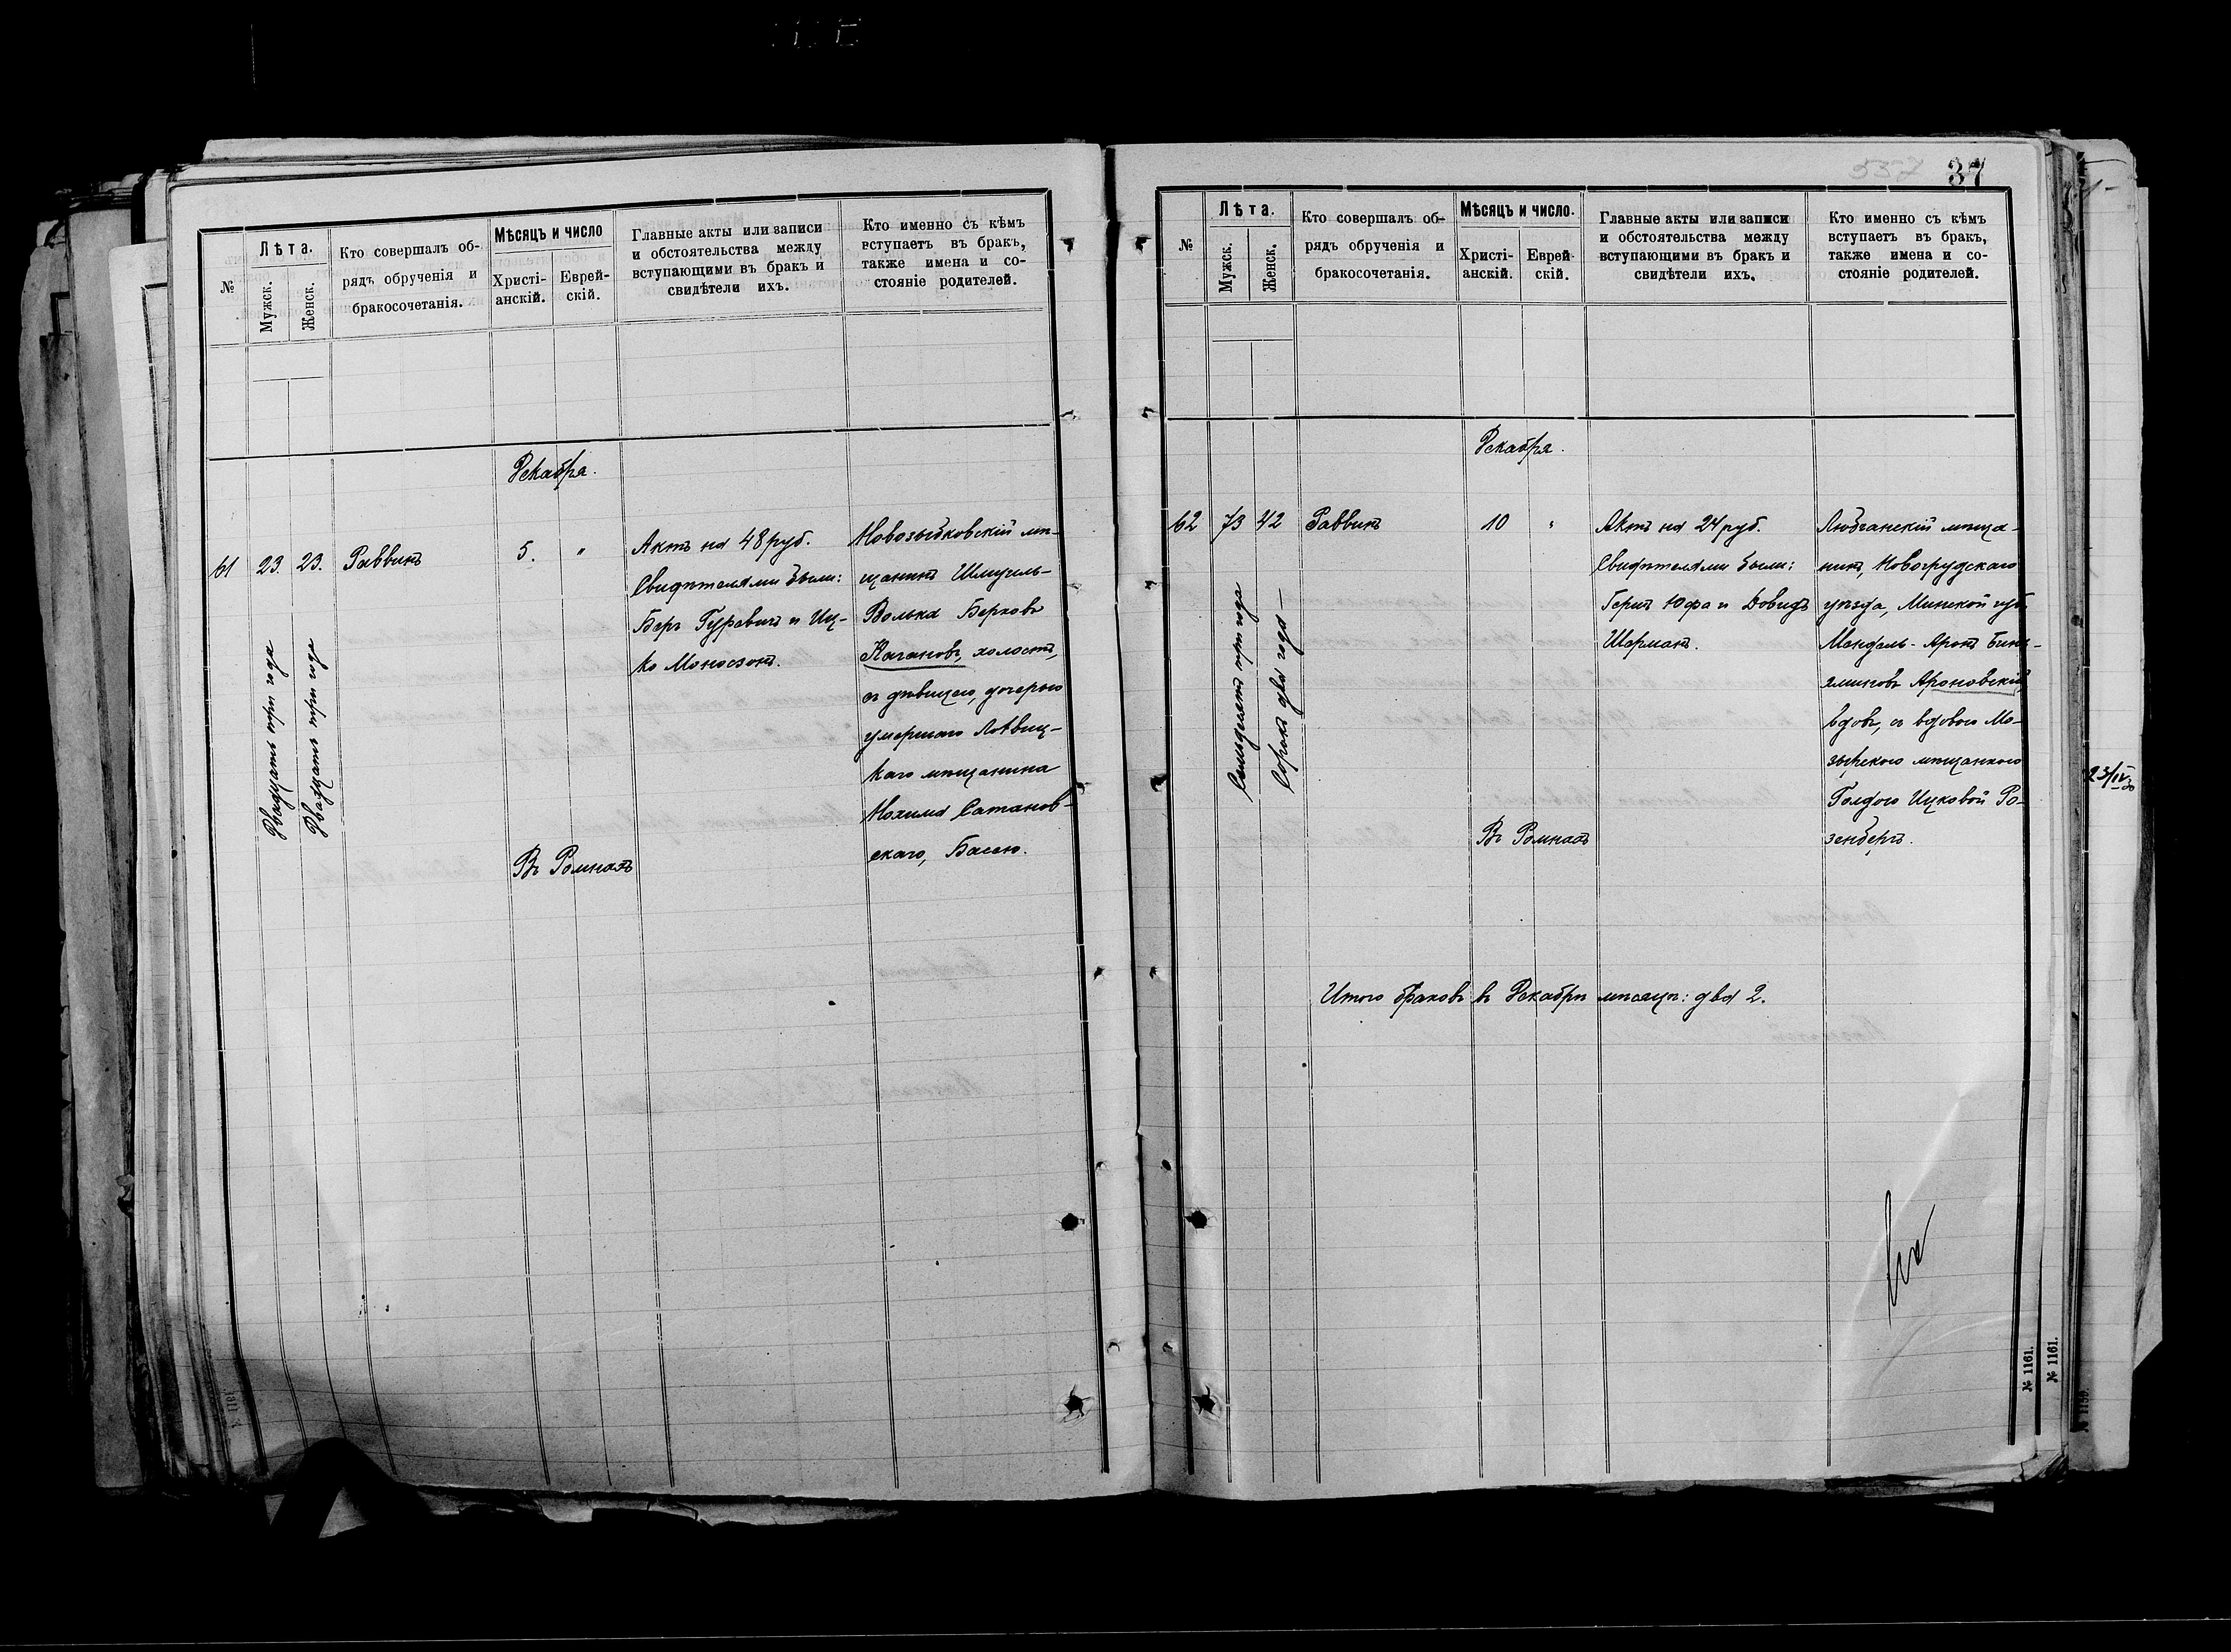 №
Лѣта.
Мужск.
Женск.
Кто совершалъ об-
рядъ обрученія и
бракосочетанія.
Мѣсяцъ и число
Христі-
анскій.
Еврей-
скій.
Главные акты или записи
и обстоятельства между
вступающими въ бракъ и
свидѣтели ихъ.
Кто именно съ кѣмъ
вступаетъ въ бракъ,
также имена и со-
стояніе родителей.
Декабря.
61
23.
23.
Двадцать три года
Двадцать три года
Раввинъ
5.
"
Въ Ромнахъ
Актъ на 48 руб.
Свидѣтелями были:
Беръ Гуревичъ и Иц-
ко Моносзонъ.
Новозыбковскій мѣ-
щанинъ Шмуель-
Волька Берковъ
Кагановъ, холостъ,
съ дѣвицею, дочерью
умершаго Лохвиц-
каго мѣщанина
Нохима Сатанов-
скаго, Басею.
537
37
№
Лѣта.
Мужск.
Женск.
Кто совершалъ об-
рядъ обрученія и
бракосочетанія.
Мѣсяцъ и число.
Христі-
анскій.
Еврей-
скій.
Главные акты или записи
и обстоятельства между
вступающими въ бракъ и
свидѣтели ихъ.
Кто именно съ кѣмъ
вступаетъ въ бракъ,
также имена и со-
стояніе родителей.
Декабря.
62
73
42
Семьдесятъ три года
Сорокъ два года —
Раввинъ
10
"
Въ Ромнахъ
Актъ на 24 руб.
Свидѣтелями были:
Герцъ Юфа и Довидъ
Шерманъ.
Любчанскій мѣща-
нинъ, Новогрудскаго
уѣзда, Минской губ.
Мендель-Аронъ Бинь-
яминовъ Ароновскій,
вдовъ, съ вдовою Мо-
зырскою мѣщанкою
Голдою Ицковой Ро-
зенбергъ.
Итого браковъ въ Декабрѣ мѣсяцѣ: два 2.
№ 1161.
№ 1161.